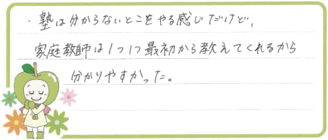 ・塾は分からないとこをやる感じだけど、
家庭教師は1つ1つ最初から教えてくれるから
分かりやすかった。